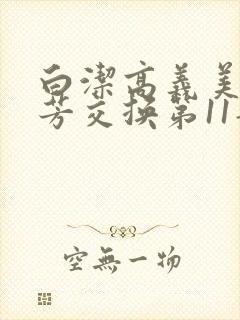 白潔高義美
芳交换第11
空無一物